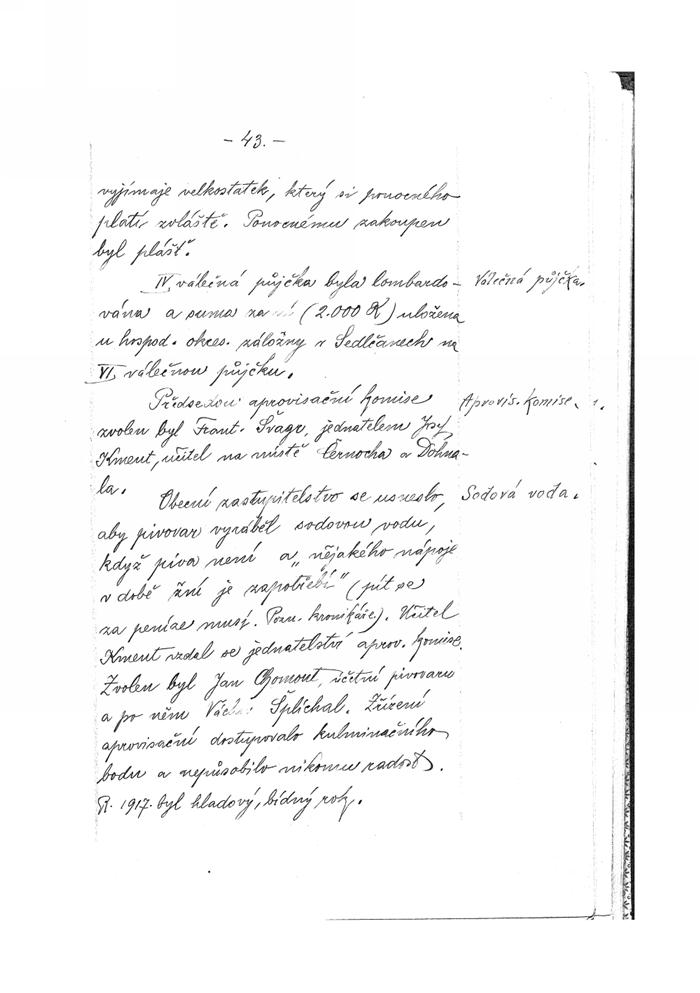 - 43. -
vyjímaje velkostatek, který si ponocného
platí zvláště. Ponocnému zakoupen
byl plášť.
IV. válečná půjčka byla lombardo- Válečná půjčka.
vána a suma za ní (2.000 K) uložena
u hospod. okres. záložny v Sedlčanech na
VI. válečnou půjčku.
Předsedou aprovisační komise Aprovis. komise.
zvolen byl Frant. Švagr, jednatelem Josef
Kment, učitel na místě Černocha a Dohna-
la.
Obecní zastupitelstvo se usneslo, Sodová voda.
aby pivovar vyráběl sodovou vodu,
když piva není a „nějakého nápoje
v době žní je zapotřebí" (pít se
za peníze musí. Pozn. kronikáře.). Učitel
Kment vzdal se jednatelství aprov. komise.
Zvolen byl Jan účetní pivovaru
a po něm Václav Šplíchal. Zřízení
aprovisační dostupovalo kulminačního
bodu a nepůsobilo nikomu radost.
R. 1917. byl hladový, bídný rok.